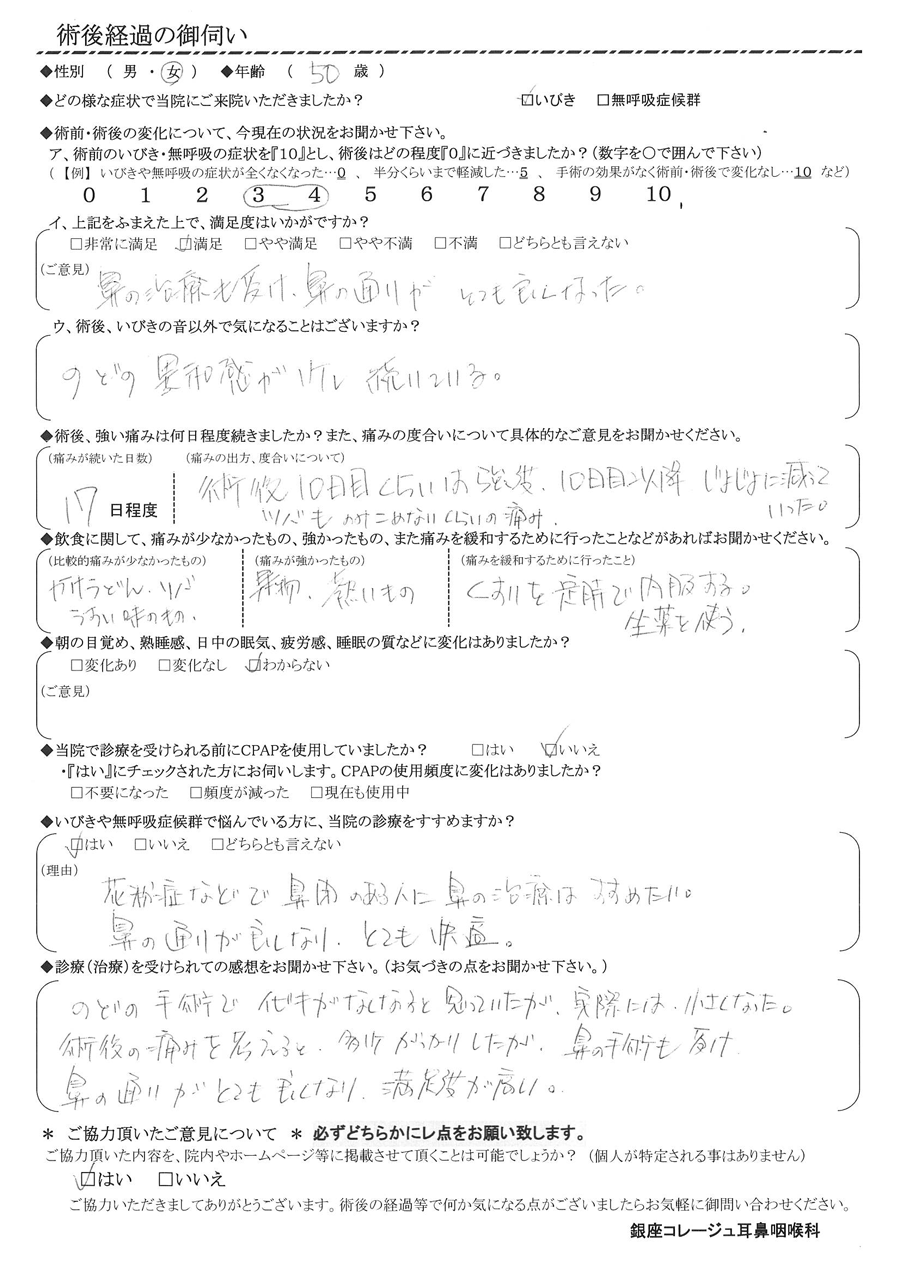 術後経過の御伺い
◆性別 （ 男 ・ 女 ） ◆年齢 （ 50 歳 ）
◆どの様な症状で当院にご来院いただきましたか？ ☑いびき □無呼吸症候群
◆術前・術後の変化について、今現在の状況をお聞かせ下さい。
ア、術前のいびき・無呼吸の症状を『10』とし、術後はどの程度『0』に近づきましたか？（数字を〇で囲んで下さい）
（【例】 いびきや無呼吸の症状が全くなくなった…0 、 半分くらいまで軽減した…5 、 手術の効果がなく術前・術後で変化なし…10 など）
0 1 2 3 4 5 6 7 8 9 10
イ、上記をふまえた上で、満足度はいかがですか？
□非常に満足 ☑満足 □やや満足 □やや不満 □不満 □どちらとも言えない
（ご意見）
鼻の治療も受け、鼻の通りが とても良くなった。
ウ、術後、いびきの音以外で気になることはございますか？
のどの異和感が少し続いている。
◆術後、強い痛みは何日程度続きましたか？また、痛みの度合いについて具体的なご意見をお聞かせください。
（痛みが続いた日数） （痛みの出方、度合いについて）
17 日程度
術後10日目くらいは強度、10日目以降 じょじょに減って
いった。
ツバも のみこめないくらいの痛み.
◆飲食に関して、痛みが少なかったもの、強かったもの、また痛みを緩和するために行ったことなどがあればお聞かせください。
（比較的痛みが少なかったもの） （痛みが強かったもの） （痛みを緩和するために行ったこと）
かけうどん、ソバ
うすい味のもの.
果物、熱いもの
くすりを定時で内服する。
生薬を使う.
◆朝の目覚め、熟睡感、日中の眠気、疲労感、睡眠の質などに変化はありましたか？
□変化あり □変化なし ☑わからない
（ご意見）
◆当院で診療を受けられる前にCPAPを使用していましたか？ □はい ☑いいえ
・『はい』にチェックされた方にお伺いします。CPAPの使用頻度に変化はありましたか？
□不要になった □頻度が減った □現在も使用中
◆いびきや無呼吸症候群で悩んでいる方に、当院の診療をすすめますか？
☑はい □いいえ □どちらとも言えない
（理由）
花粉症などで鼻閉のある人に鼻の治療はすすめたい。
鼻の通りが良くなり、とても快適。
◆診療（治療）を受けられての感想をお聞かせ下さい。（お気づきの点をお聞かせ下さい。）
のどの手術でイビキがなくなると思っていたが、実際には、小さくなった。
術後の痛みを考えると、多少がっかりしたが、鼻の手術も受け
鼻の通りがとても良くなり、満足度が高い。
＊ ご協力頂いたご意見について ＊ 必ずどちらかにレ点をお願い致します。
ご協力頂いた内容を、院内やホームページ等に掲載させて頂くことは可能でしょうか？ （個人が特定される事はありません）
☑はい □いいえ
ご協力いただきましてありがとうございます。術後の経過等で何か気になる点がございましたらお気軽に御問い合わせください。
銀座コレージュ耳鼻咽喉科